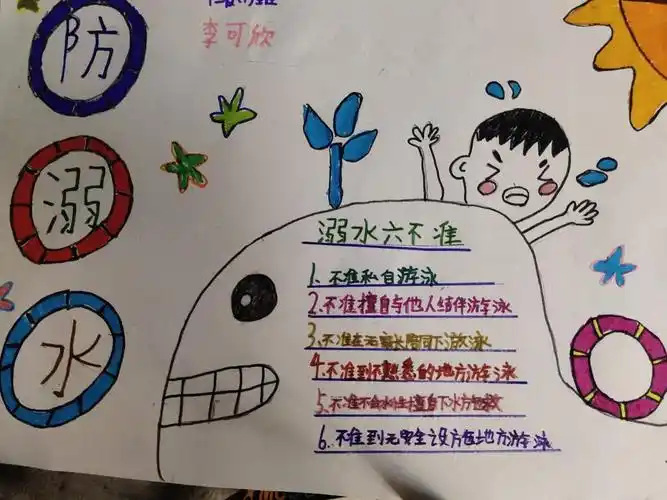 防
溺
水
李可欣
溺水六不准
1. 不准私自游泳
2. 不准擅自与他人结伴游泳
3. 不准在无家长陪同下游泳
4. 不准到不熟悉的地方游泳
5. 不准不会水性擅自下水方
6. 不准到无安全设方地方游泳